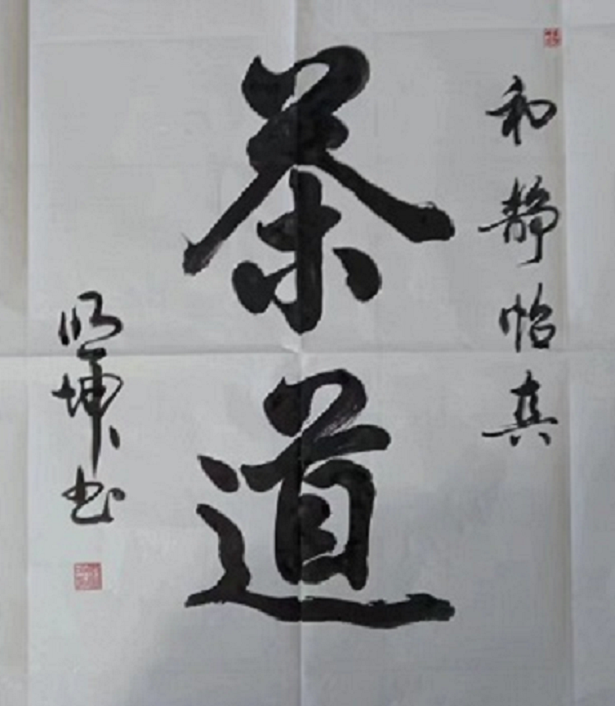 和静怡真
茶道
明埔书